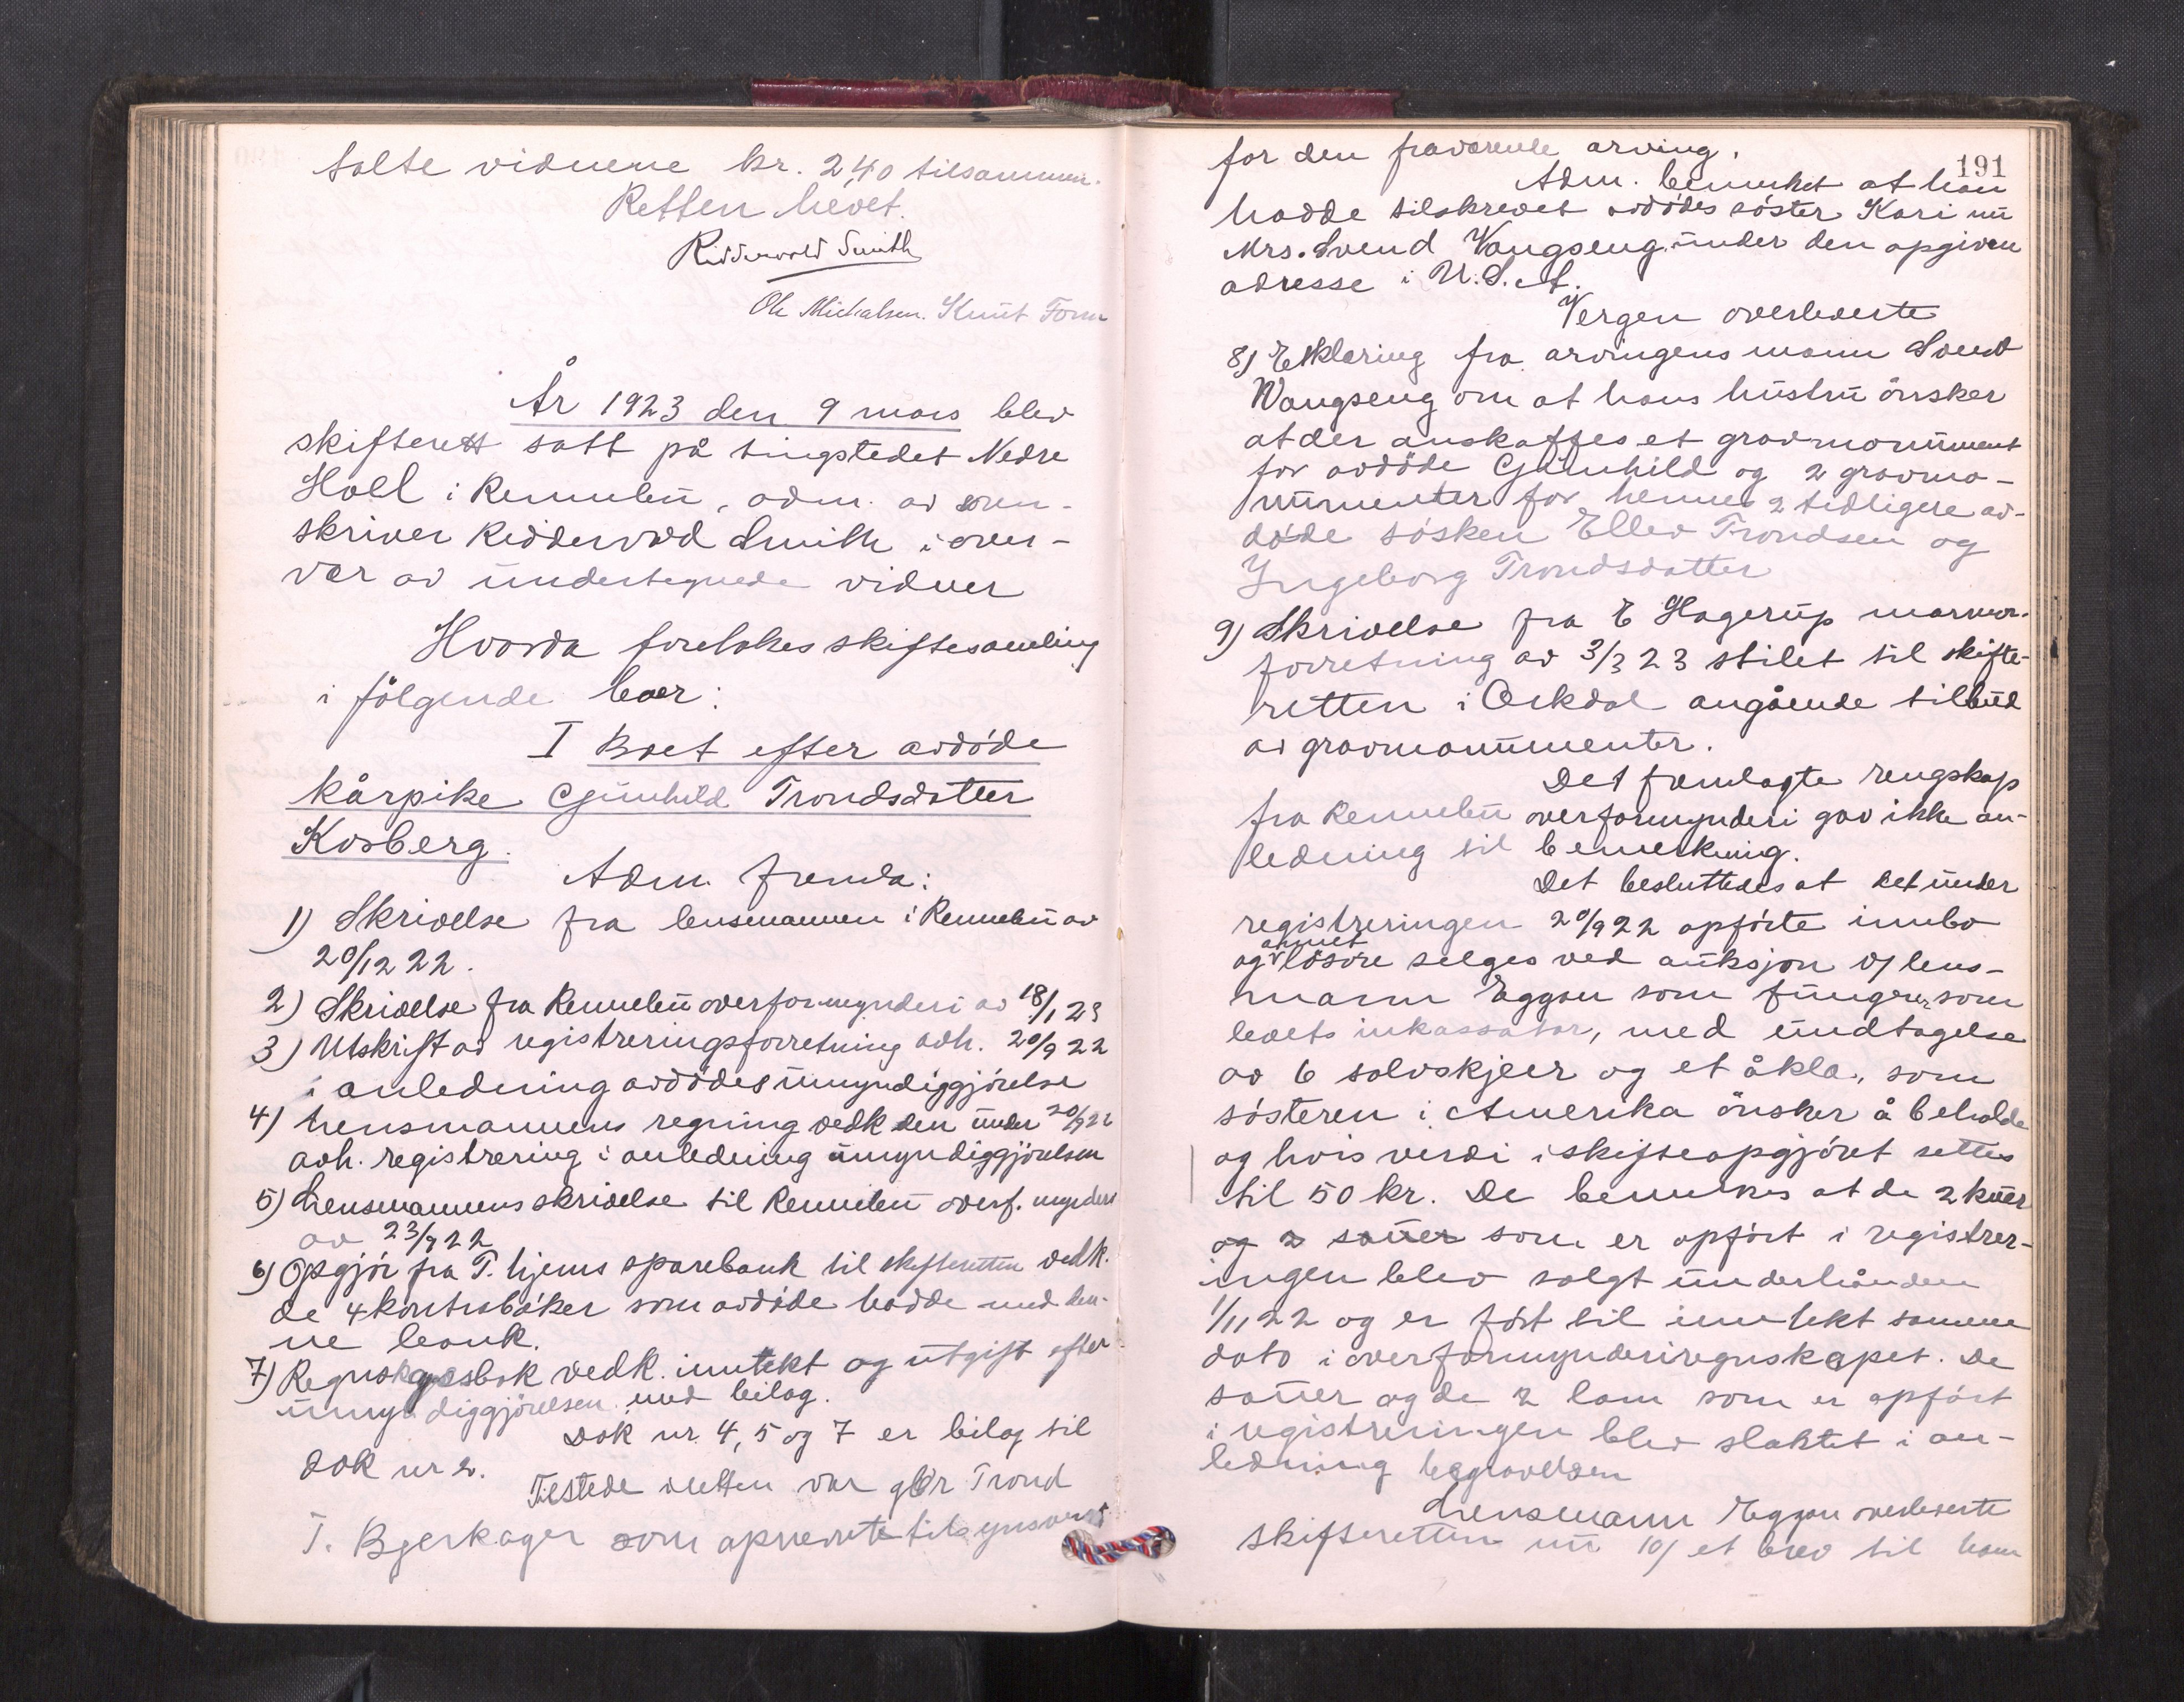 talte vidnene kr. 2,40 tilsammen.
Retten hevet.
Ridderwold Smith
Ole Michalsen. Knut Foru
År 1923 den 9 mars blev
skifterett satt på tingstedet Nedre
Holl i Rennebu, adm. av soren-
skriver Riddervold Smith i over-
vær av undertegnede vidner
Hvorda foretokes skiftesamling
i følgende boer:
I Boet efter avdøde
kårpike Gunhild Trondsdatter
Kosberg.
Adm. fremla:
1) Skrivelse fra lensmannen i Rennebu av
20/12 22.
2) Skrivelse fra Rennebu overformynderi av 18/1 23
3) Utskrift av registreringsforretning avh. 20/9 22
i anledning avdødes umyndiggjørelse
4) Lensmannens regning vedk den under 20/9 22
avh. registrering i anledning umyndiggjørelsen
5) Lensmannens skrivelse til Rennebu overf.mynderi
av 23/9 22
6) Opgjør fra T.hjems sparebank til skifteretten vedk.
de 4 kontrabøker som avdøde hadde med den-
ne bank.
7) Regnskapsbok vedk. inntekt og utgift efter
umyndiggjørelsen med bilag.
Dok nr. 4, 5 og 7 er bilag til
dok nr 2.
Tilstede i retten var gbr Trond
T. Bjerkager som opnevnt tilsynsverge
191
for den fraværende arving.
Adm. bemerket at han
hadde tilskrevet avdødes søster Kari nu
Mrs. Svend Vangseng under den opgiven
adresse i U.S.A.
Vergen overleverte
8) Erklæring fra arvingens mann Svend
Wangseng om at hans hustru ønsker
at der anskaffes et gravmonument
for avdøde Gunhild og 2 gravmo-
numenter for hennes 2 tidligere av-
døde søsken Ellev Trondsen og
Ingeborg Trondsdatter
9) Skrivelse fra E Hagerup marmor-
forretning av 3/3 23 stilet til skifte-
retten i Orkdal angående tilbud
av gravmonumenter.
Det fremlagte rengskap
fra Rennebu overformynderi gav ikke an-
ledning til bemerkning.
Det besluttedes at det under
registreringen 20/9 22 opførte innbo
annet
og løsøre selges ved auksjon v/ lens-
mann Eggan som fungerer som
boets inkassator, med undtagelse
av 6 sølvskjeer og et åkla, som
søsteren i Amerika ønsker å beholde
og hvis verdi i skifteopgjøret settes
til 50 kr. De bemerkes at de 2 kuer
og 2 sauer som er opført i registrer-
ingen blev solgt underhånden
1/11 22 og er ført til inntekt samme
dato i overformynderiregnskapet. De
sauer og de 2 lam som er opført
i registreringen blev slaktet i an-
ledning begravelsen
Lensmann Eggan overleverte
skifteretten nu 10/ et brev til ham